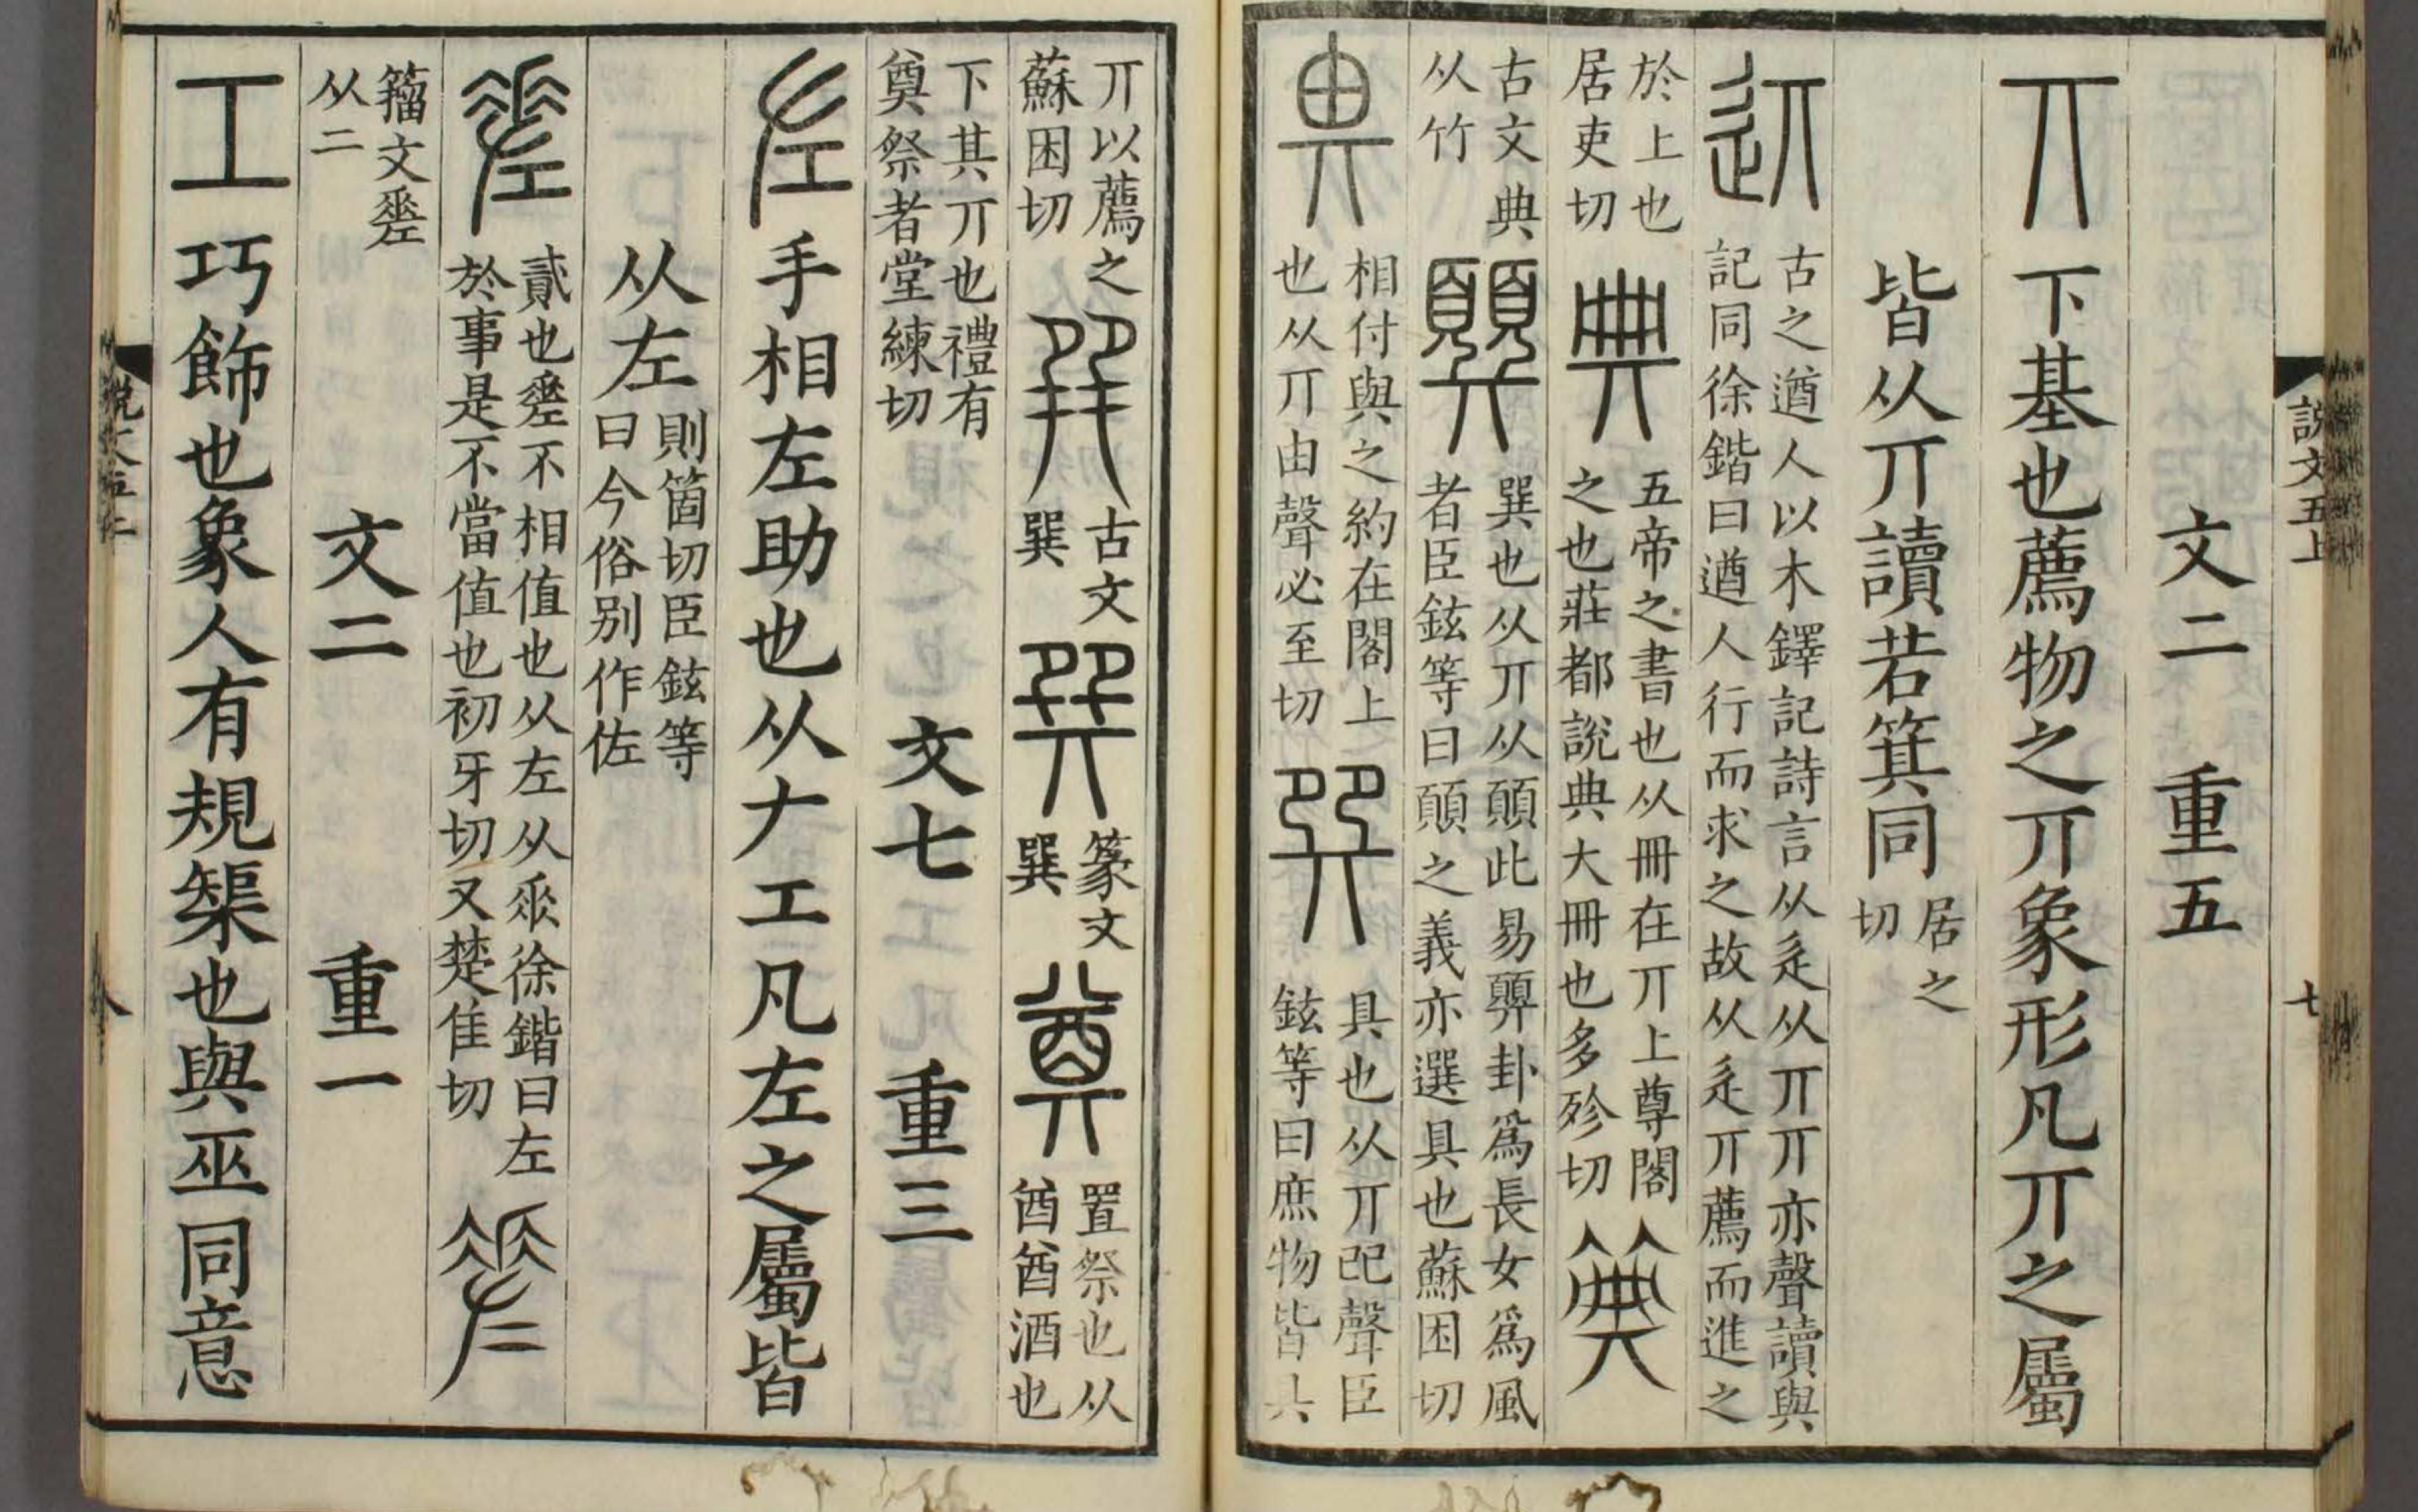 說文五上 七
文二 重五
丌 下基也薦物之丌象形凡丌之屬
皆从丌讀若箕同 居之切
𨑒 古之遒人以木鐸記詩言从辵从丌丌亦聲讀與記同徐鍇曰遒人行而求之故从辵丌薦而進之
於上也居吏切 典 五帝之書也从冊在丌上尊閣之也莊都說典大冊也多殄切 𥮏
古文典从竹 顨 巽也从丌从𩠐此易顨卦爲長女爲風者臣鉉等曰𩠐之義亦選具也蘇困切
畀 相付與之約在閣上也从丌由聲必至切 巽 具也从丌𢀳聲臣鉉等曰庶物皆具
丌以薦之蘇困切 𢁅 古文巽 𢁉 篆文巽 奠 置祭也从酋酋酒也
下其丌也禮有奠祭者堂練切 文七 重三
左 手相左助也从𠂇工凡左之屬皆
从左 則箇切臣鉉等曰今俗别作佐
𢀩 貳也𢀩不相值也从左从𠂹徐鍇曰左於事是不當值也初牙切又楚佳切
籀文𢀩从二 文二 重一
工 巧飾也象人有規榘也與巫同意
說文五上 八